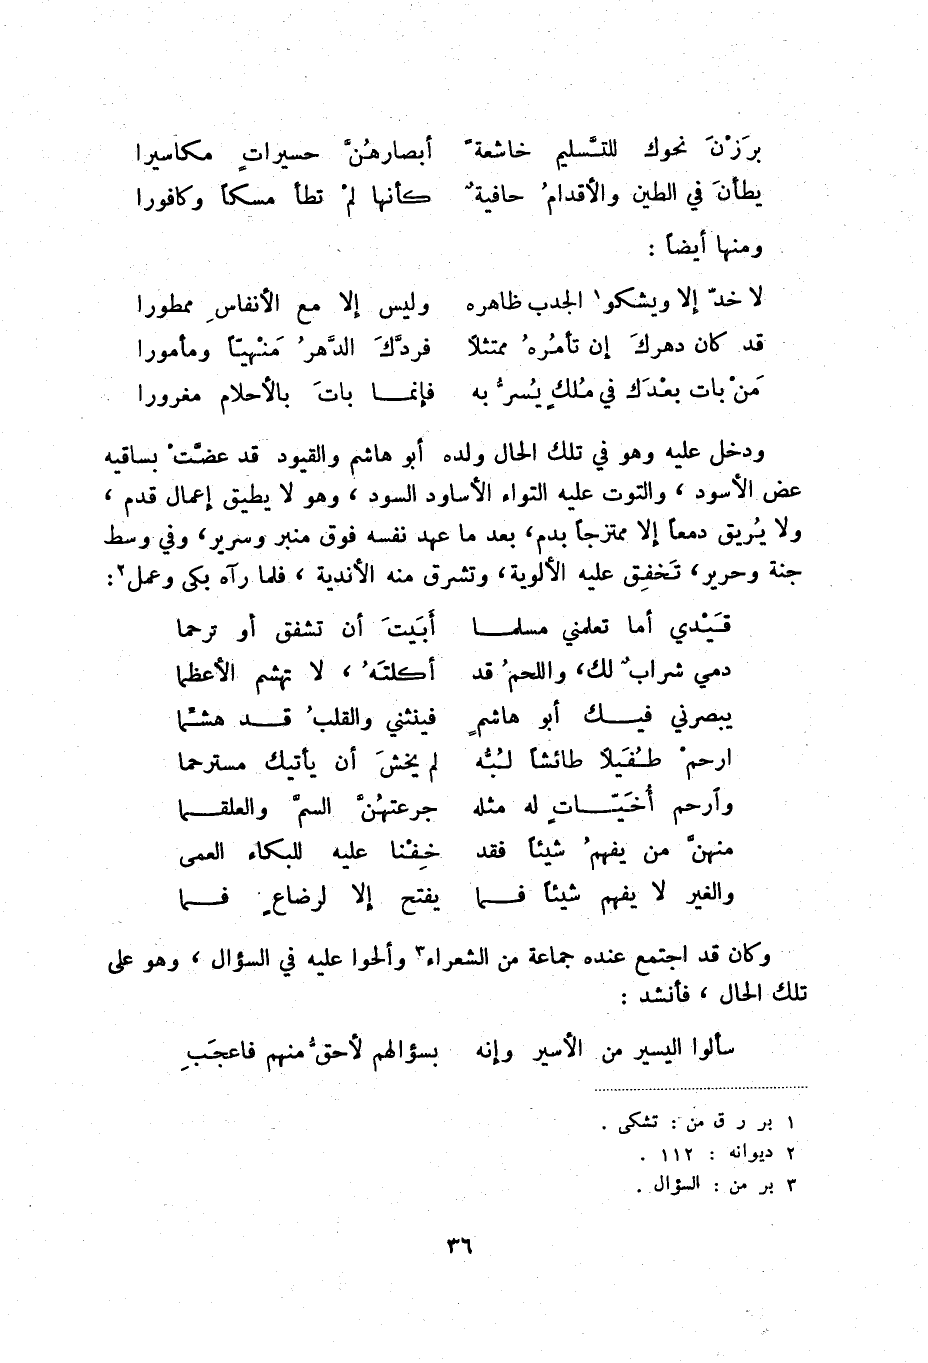 برَزْنَ نحوك للتَّسليم خاشعةً أبصارهُنَّ حسيراتٍ مكاسيرا
يطأنَ في الطين والأقدامُ حافيةٌ كأنها لمْ تطأ مسكاً وكافورا
ومنها أيضاً :
لا خدّ إلا ويشكو١ الجدب ظاهره وليس إلا مع الأنفاسِ ممطورا
قد كان دهركَ إن تأمُره ُ ممتثلاً فردَّكَ الدَّهرُ مَنْهيّاً ومأمورا
مَنْ بات بعْدَك في مُلكٍ يُسرُّ به فإنمــا باتَ بالأحلام مغرورا
ودخل عليه وهو في تلك الحال ولده أبو هاشم والقيود قد عضَّتْ بساقيه
عض الأسود ، والتوت عليه التواء الأساود السود ، وهو لا يطيق إعمال قدم ،
ولا يُريق دمعاً إلا ممتزجاً بدم، بعد ما عهد نفسه فوق منبر وسرير، وفي وسط
جنة وحرير، تَخفِق عليه الألوية، وتشرق منه الأندية ، فلما رآه بكى وعمل٢:
قَيْدي أما تعلمني مسلمــا أَبَيتَ أن تشفق أو ترحما
دمي شرابٌ لك، واللحمُ قد أكلتَهُ ، لا تهشم الأعظما
يبصرني فيــك أبو هاشمٍ فينثني والقلبُ قــد هشّما
ارحمْ طُفَيلاً طائشاً لبُّه لم يخشَ أن يأتيك مسترحما
وارحم أُخَيّــاتٍ له مثله جرعتهُنَّ السمَّ والعلقــما
منهنَّ من يفهمُ شيئاً فقد خِفْنا عليه للبكاء العمى
والغير لا يفهم شيئاً فــما يفتح إلا لرضاعٍ فــما
وكان قد اجتمع عنده جماعة من الشعراء٣ وألحوا عليه في السؤال ، وهو على
تلك الحال ، فأنشد :
سألوا اليسير من الأسير وإنه بسؤالهم لأحقُّ منهم فاعجَبِ
١ بر ر ق من : تشكى .
٢ ديوانه : ١١٢ .
٣ بر من : السؤال .
٣٦